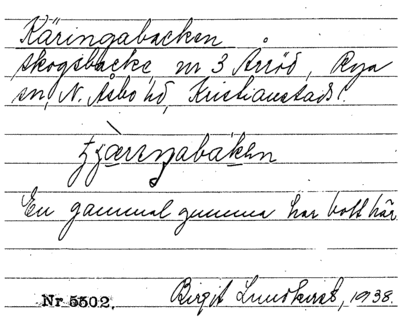 Käringabacken
skogsbacke nr 3 Årröd, Rya
sn, N. Åsbo hd, Kristianstads l.
En gammal gumma har bott här
Nr 5502. Birgit Lundkvist, 1938.